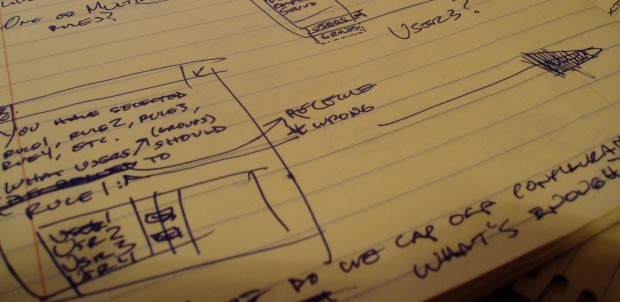 ONE OR MULTI
RULES?
SOUND
USERS
GROUPS
USERS?
X
YOU HAVE SELECTED
RULE1, RULE2, RULE3,
RULE4, ETC. (GROUPS)
WHAT USERS / SHOULD
TO
RULE 1:
USER1
USER2
USER3
USER4
WRONG
DO WE CAP OFF
WHAT'S ENOUGH